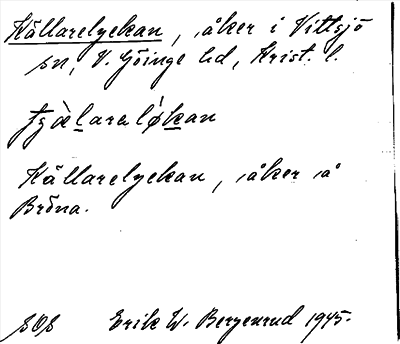 Källarelyckan, åker i Vittsjö
sn, V. Göinge hd, Krist. l.
Källarelyckan, åker å
Bröna.
SOS Erik W. Bergenrud 1945.